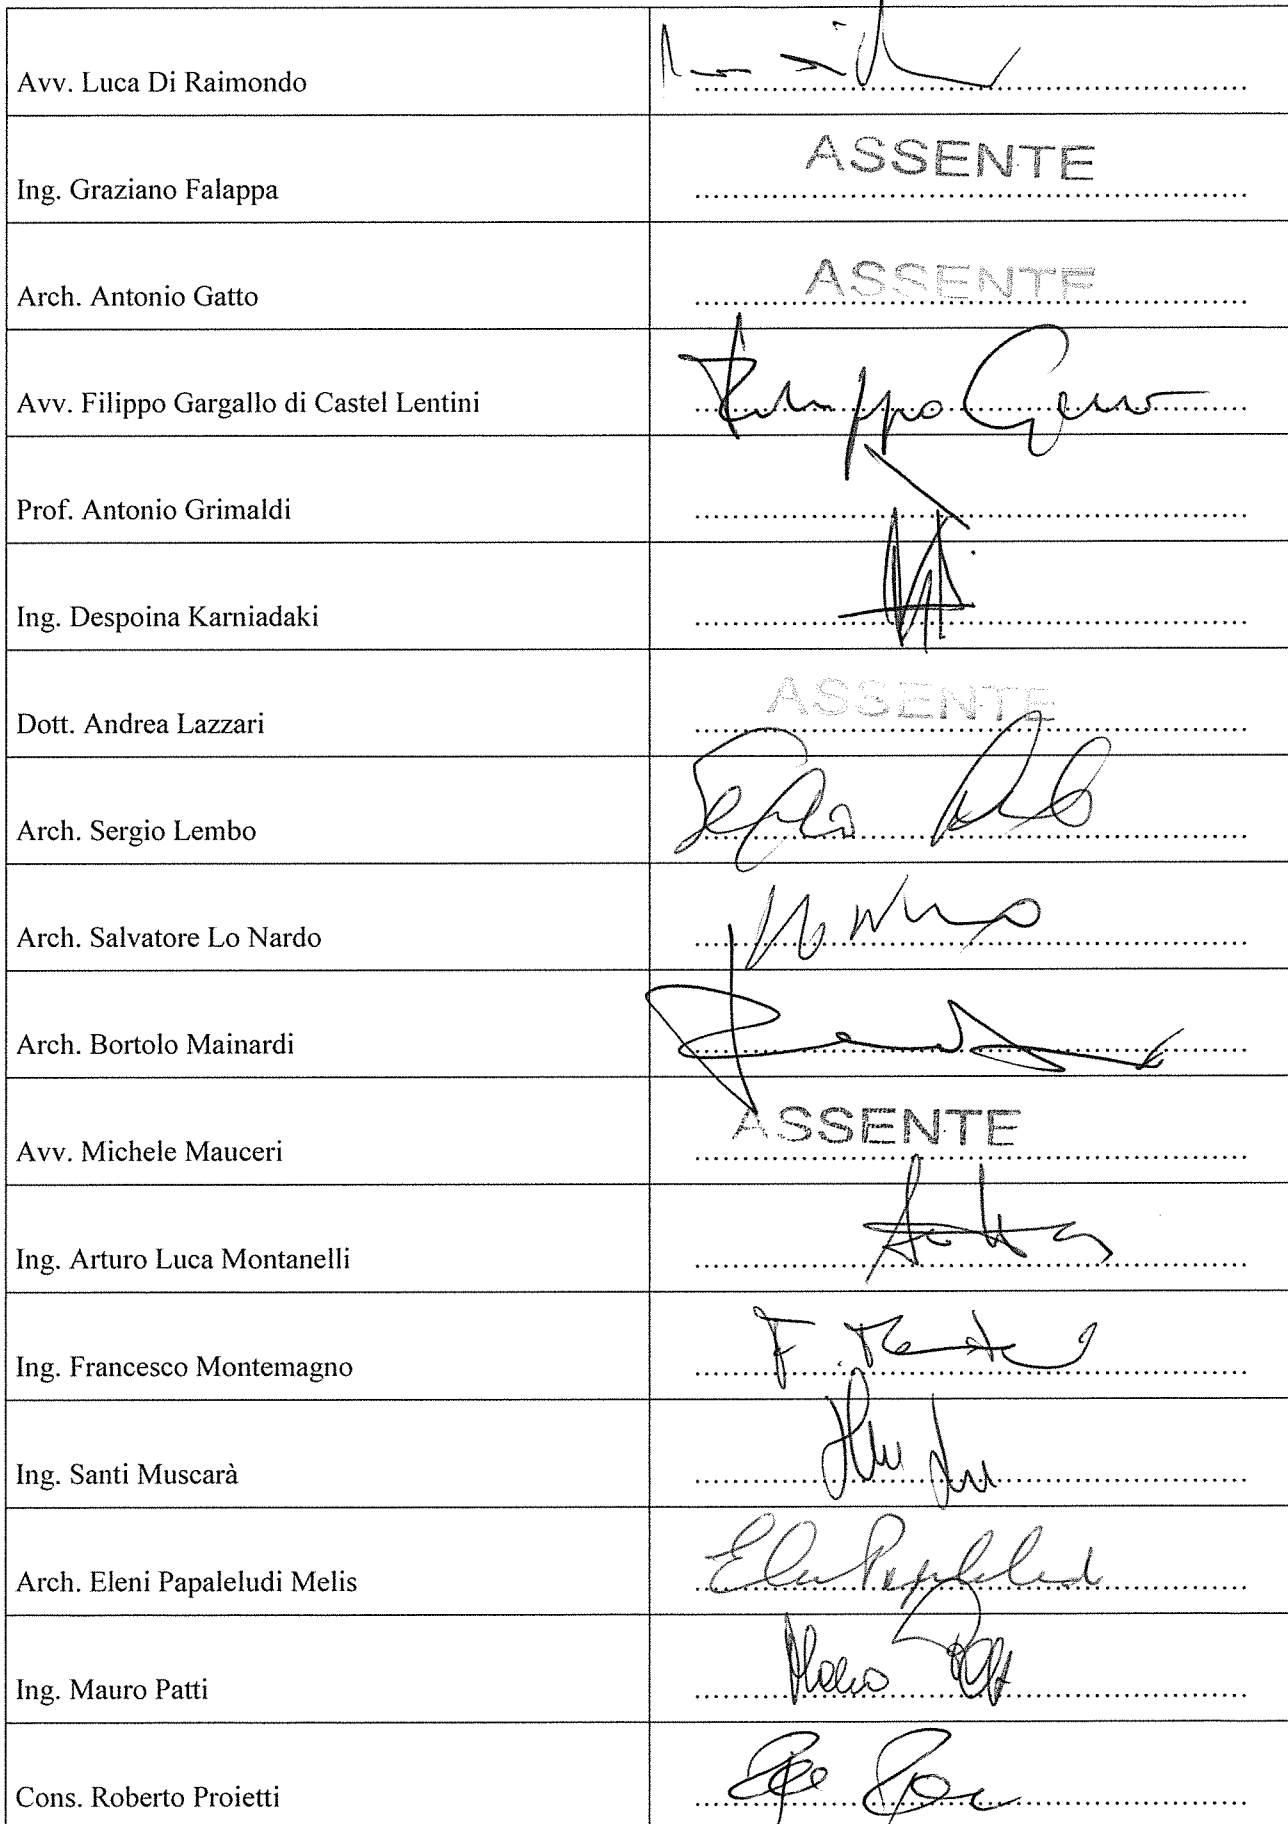 Avv. Luca Di Raimondo
Ing. Graziano Falappa ASSENTE
Arch. Antonio Gatto ASSENTE
Avv. Filippo Gargallo di Castel Lentini Filippo
Prof. Antonio Grimaldi
Ing. Despoina Karniadaki
Dott. Andrea Lazzari ASSENTE
Arch. Sergio Lembo
Arch. Salvatore Lo Nardo
Arch. Bortolo Mainardi
Avv. Michele Mauceri ASSENTE
Ing. Arturo Luca Montanelli
Ing. Francesco Montemagno
Ing. Santi Muscarà
Arch. Eleni Papaleludi Melis
Ing. Mauro Patti
Cons. Roberto Proietti